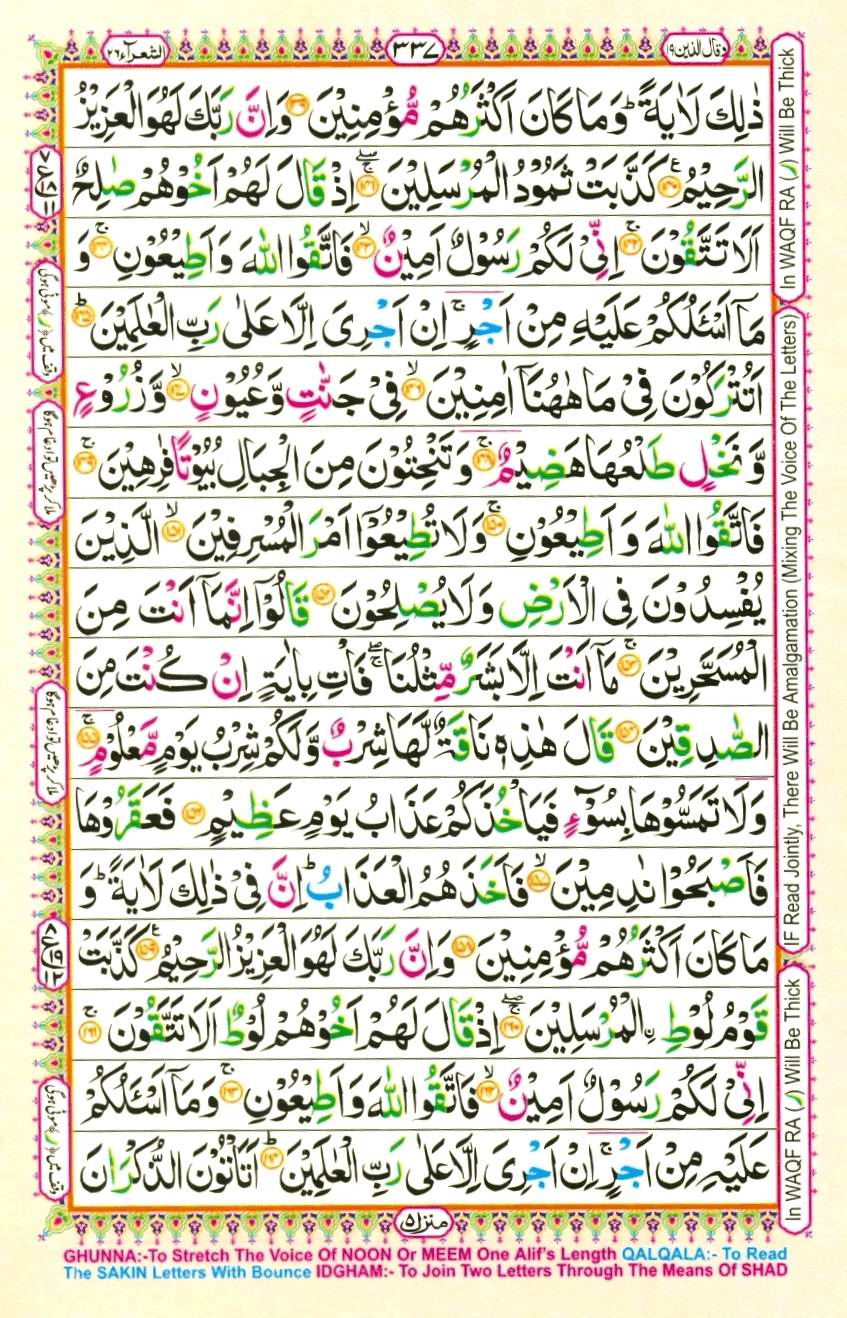 وقال الذين ١٩
٣٣٧
الشعرآء ٢٦
ذٰلِكَ لَاٰيَةً ؕ وَمَا كَانَ اَكْثَرُهُمْ مُّؤْمِنِيْنَ ۝۱۳۹ وَاِنَّ رَبَّكَ لَهُوَ الْعَزِيْزُ
الرَّحِيْمُ ۝۱۴۰ كَذَّبَتْ ثَمُوْدُ الْمُرْسَلِيْنَ ۝۱۴۱ اِذْ قَالَ لَهُمْ اَخُوْهُمْ صٰلِحٌ
اَلَا تَتَّقُوْنَ ۝۱۴۲ اِنِّىْ لَكُمْ رَسُوْلٌ اَمِيْنٌ ۝۱۴۳ فَاتَّقُوا اللّٰهَ وَاَطِيْعُوْنِ ۝۱۴۴ وَ
مَاۤ اَسْـَٔلُكُمْ عَلَيْهِ مِنْ اَجْرٍ ۚ اِنْ اَجْرِىَ اِلَّا عَلٰى رَبِّ الْعٰلَمِيْنَ ۝۱۴۵
اَتُتْرَكُوْنَ فِىْ مَا هٰهُنَاۤ اٰمِنِيْنَ ۝۱۴۶ فِىْ جَنّٰتٍ وَّعُيُوْنٍ ۝۱۴۷ وَّزُرُوْعٍ
وَّنَخْلٍ طَلْعُهَا هَضِيْمٌ ۝۱۴۸ وَتَنْحِتُوْنَ مِنَ الْجِبَالِ بُيُوْتًا فٰرِهِيْنَ ۝۱۴۹
فَاتَّقُوا اللّٰهَ وَاَطِيْعُوْنِ ۝۱۵۰ وَلَا تُطِيْعُوْۤا اَمْرَ الْمُسْرِفِيْنَ ۝۱۵۱ الَّذِيْنَ
يُفْسِدُوْنَ فِى الْاَرْضِ وَلَا يُصْلِحُوْنَ ۝۱۵۲ قَالُوْۤا اِنَّمَاۤ اَنْتَ مِنَ
الْمُسَحَّرِيْنَ ۝۱۵۳ مَاۤ اَنْتَ اِلَّا بَشَرٌ مِّثْلُنَا ۖ فَاْتِ بِاٰيَةٍ اِنْ كُنْتَ مِنَ
الصّٰدِقِيْنَ ۝۱۵۴ قَالَ هٰذِهٖ نَاقَةٌ لَّهَا شِرْبٌ وَّلَكُمْ شِرْبُ يَوْمٍ مَّعْلُوْمٍ ۝۱۵۵
وَلَا تَمَسُّوْهَا بِسُوْٓءٍ فَيَاْخُذَكُمْ عَذَابُ يَوْمٍ عَظِيْمٍ ۝۱۵۶ فَعَقَرُوْهَا
فَاَصْبَحُوْا نٰدِمِيْنَ ۝۱۵۷ فَاَخَذَهُمُ الْعَذَابُ ؕ اِنَّ فِىْ ذٰلِكَ لَاٰيَةً ؕ وَ
مَا كَانَ اَكْثَرُهُمْ مُّؤْمِنِيْنَ ۝۱۵۸ وَاِنَّ رَبَّكَ لَهُوَ الْعَزِيْزُ الرَّحِيْمُ ۝۱۵۹ كَذَّبَتْ
قَوْمُ لُوْطِ ِۨالْمُرْسَلِيْنَ ۝۱۶۰ اِذْ قَالَ لَهُمْ اَخُوْهُمْ لُوْطٌ اَلَا تَتَّقُوْنَ ۝۱۶۱
اِنِّىْ لَكُمْ رَسُوْلٌ اَمِيْنٌ ۝۱۶۲ فَاتَّقُوا اللّٰهَ وَاَطِيْعُوْنِ ۝۱۶۳ وَمَاۤ اَسْـَٔلُكُمْ
عَلَيْهِ مِنْ اَجْرٍ ۚ اِنْ اَجْرِىَ اِلَّا عَلٰى رَبِّ الْعٰلَمِيْنَ ۝۱۶۴ اَتَاْتُوْنَ الذُّكْرَانَ
منزل ۵
In WAQF RA (ر) Will Be Thick
IF Read Jointly, There Will Be Amalgamation (Mixing The Voice Of The Letters)
In WAQF RA (ر) Will Be Thick
وقف میں ﴿ر﴾ موٹی ہوگی
ملا کر پڑھیں تو ادغام ہوگا
ملا کر پڑھیں تو ادغام ہوگا
وقف میں ﴿ر﴾ موٹی ہوگی
GHUNNA:-To Stretch The Voice Of NOON Or MEEM One Alif's Length QALQALA:- To Read
The SAKIN Letters With Bounce IDGHAM:- To Join Two Letters Through The Means Of SHAD